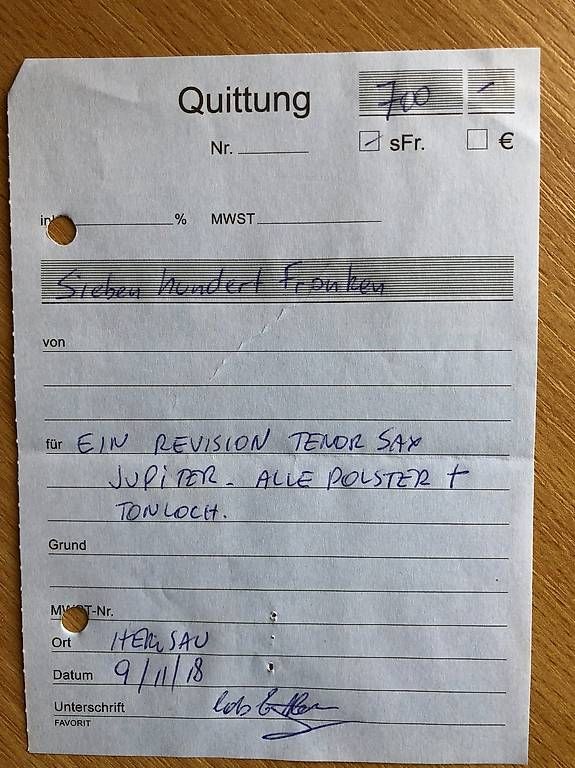 Quittung
700 -
Nr.
sFr. €
% MWST
Sieben hundert Franken
von
für EIN REVISION TENOR SAX
JUPITER - ALLE POLSTER +
TONLOCH.
Grund
MWST-Nr.
Ort HERISAU
Datum 9/11/18
Unterschrift
FAVORIT